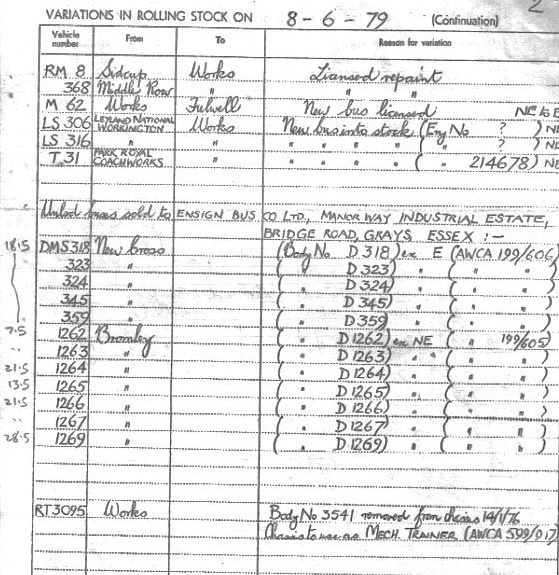 2
VARIATIONS IN ROLLING STOCK ON 8 - 6 - 79 (Continuation)
Vehicle number From To Reason for variation
RM 8 Sidcup Works Licensed repaint
368 Middle Row " " "
M 62 Works Fulwell New bus licensed NE to E
LS 306 LEYLAND NATIONAL WORKINGTON Works New bus into stock (Eng No ? ) NE
LS 316 " " " " " " ( " ? ) NE
T.31 PARK ROYAL COACHWORKS " " " " " ( " 214678) NE
Unlicd buses sold to ENSIGN BUS CO LTD., MANOR WAY INDUSTRIAL ESTATE,
BRIDGE ROAD, GRAYS, ESSEX :-
18.5 DMS 318 New Cross (Body No D 318) ex E (AWCA 199/606)
323 " ( " D 323) " ( " " )
324 " ( " D 324) " ( " " )
345 " ( " D 345) " ( " " )
359 " ( " D 359) " ( " " )
7.5 1262 Bromley ( " D 1262) ex NE ( " 199/605)
" 1263 " ( " D 1263) " " ( " " )
21.5 1264 " ( " D 1264) " ( " " )
13.5 1265 " ( " D 1265) " ( " " )
21.5 1266 " ( " D 1266) " ( " " )
" 1267 " ( " D 1267) " ( " " )
28.5 1269 " ( " D 1269) " ( " " )
RT 3095 Works Body No 3541 removed from chassis 14/1/76
Chassis to use as MECH. TRAINER (AWCA 599/017)